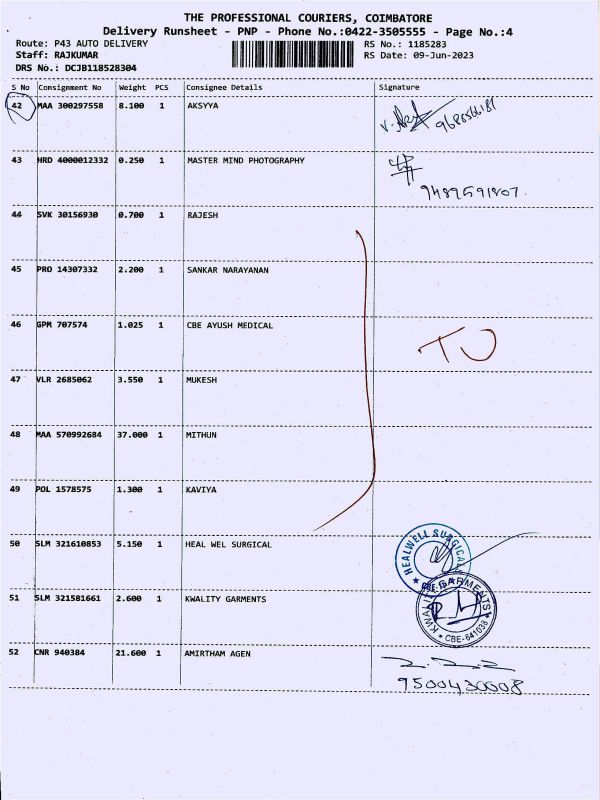 THE PROFESSIONAL COURIERS, COIMBATORE
Delivery Runsheet - PNP - Phone No.:0422-3505555 - Page No.:4
Route: P43 AUTO DELIVERY
RS No.: 1185283
Staff: RAJKUMAR
RS Date: 09-Jun-2023
DRS No.: DCJB118528304
S No Consignment No Weight PCS Consignee Details Signature
42 MAA 300297558 8.100 1 AKSYYA
43 HRD 4000012332 0.250 1 MASTER MIND PHOTOGRAPHY
9489591807
44 SVK 30156930 0.700 1 RAJESH
45 PRO 14307332 2.200 1 SANKAR NARAYANAN
46 GPM 707574 1.025 1 CBE AYUSH MEDICAL
TU
47 VLR 2685062 3.550 1 MUKESH
48 MAA 570992684 37.000 1 MITHUN
49 POL 1578575 1.300 1 KAVIYA
50 SLM 321610853 5.150 1 HEAL WEL SURGICAL
HEALWELL SURGICAL
51 SLM 321581661 2.600 1 KWALITY GARMENTS
KWALITY GARMENTS
CBE-641038
52 CNR 940384 21.600 1 AMIRTHAM AGEN
9500430008